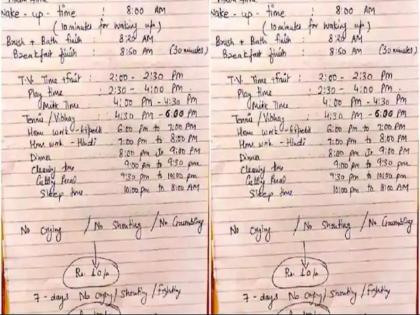 Wake - up - time : 8:00 AM
(10 minutes for waking up)
Brush + Bath finish 8:20 AM
Breakfast finish : 8:50 AM (30 minutes)
T.V. Time + fruit : 2:00 - 2:30 Pm
Play time : 2:30 - 4:00 Pm
Milk Time 4:00 Pm - 4:30 Pm
Tennis / Vibhay : 4:30 PM - 6:00 Pm
Home work - 6:00 Pm to 7:00 Pm
Home work - Hindi 7:00 Pm to 8:00 PM
Dinner 8:00 pm to 9:00 PM
Cleaning time 9:00 Pm to 9:30 pm
9:30 pm to 10:00 pm
Sleep time 10:00 pm to 8:00 AM
No crying / No Shouting / No Grumbling
Rs. 10/-
7 - days No crying / shouting / fighting
Wake - up - time : 8:00 AM
(10 minutes for waking up)
Brush + Bath finish 8:20 AM
Breakfast finish : 8:50 AM (30 minutes)
T.V. Time + fruit : 2:00 - 2:30 Pm
Play time : 2:30 - 4:00 Pm
Milk Time 4:00 Pm - 4:30 Pm
Tennis / Vibhay : 4:30 PM - 6:00 Pm
Home work - 6:00 Pm to 7:00 Pm
Home work - Hindi 7:00 Pm to 8:00 PM
Dinner 8:00 pm to 9:00 PM
Cleaning time 9:00 Pm to 9:30 pm
9:30 pm to 10:00 pm
Sleep time 10:00 pm to 8:00 AM
No crying / No Shouting / No Grumbling
Rs. 10/-
7 - days No crying / shouting / fighting